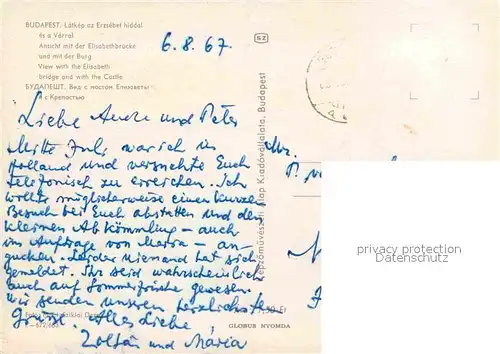 BUDAPEST. Látkép az Erzsébet híddal
és a Várral
Ansicht mit der Elisabethbrücke
und mit der Burg
View with the Elisabeth
bridge and with the Castle
БУДАПЕШТ. Вид с мостом Елизаветы
и с Крепостью
6.8.67
52
Liebe und Peter
Mitte Juli war ich in
Holland und versuchte Euch
telefonisch zu erreichen. Ich
wollte möglicherweise einen kurzen
Besuch bei Euch abstatten und den
kleinen Abkömmling – auch
im Auftrage von Maria – an-
gucken. Leider niemand hat sich
gemeldet. Ihr seid wahrscheinlich
auch auf Sommerfrische gewesen.
Wir senden unseren herzlichste
Grüsse. Alles Liebe
Zoltán und Mária
Képzőművészeti Alap Kiadóvállalata, Budapest
GLOBUS NYOMDA
privacy protection
Datenschutz